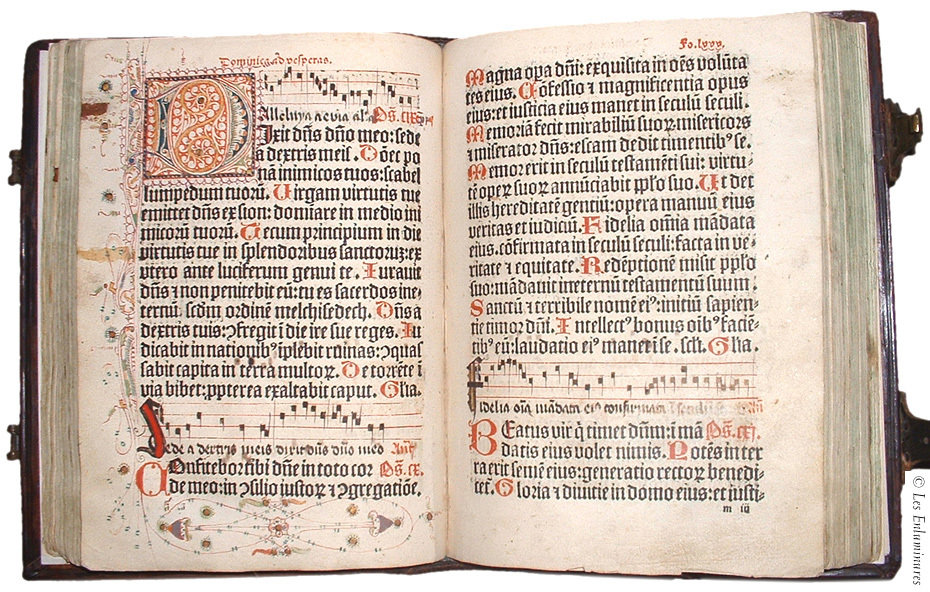 Dominica ad vesperas.
Alleluya a evia al'a Ps. cix.
Dixit dn̄s dn̄o meo: sede
a dextris meis. Donec po
nā inimicos tuos: scabel
lum pedum tuorū. Uirgam virtutis tue
emittet dn̄s ex sion: dominare in medio ini
micorū tuorū. Tecum principium in die
virtutis tue in splendoribus sanctorū: ex
vtero ante luciferum genui te. Iurauit
dn̄s ⁊ non penitebit eū: tu es sacerdos ine-
ternū scdm̄ ordinē melchisedech. Dn̄s a
dextris tuis: ꝯfregit ī die ire sue reges. Iu
dicabit in nationibꝰ īplebit ruinas: ꝯquas
sabit capita in terra multoꝝ. De torrēte ī
via bibet: ꝓpterea exaltabit caput. Gl̄ia.
Sede a dextris meis dixit dn̄s dn̄o meo Añ
Confitebor tibi dn̄e in toto cor Ps. cx.
de meo: in ꝯsilio iustoꝝ ⁊ ꝯgregatiōe.
Fo. lxxx.
Magna oꝑa dn̄i: exquisita in oēs volūta
tes eius. Cōfessio ⁊ magnificentia opus
eius: et iusticia eius manet in seculū seculi.
Memoriā fecit mirabiliū suoꝝ misericors
⁊ miserator dn̄s: escam dedit timentibꝰ se.
Memor erit in seculū testamēti sui: virtu-
tē operū suoꝝ annūciabit ppl̄o suo. Ut det
illis hereditatē gentiū: opera manuū eius
veritas et iudiciū. Fidelia om̄ia mādata
eius. cōfirmata in seculū seculi: facta in ve-
ritate ⁊ equitate. Redēptionē misit ppl̄o
suo: mādauit ineternū testamentū suum.
Sanctū ⁊ terribile nomē eiꝰ: iniciū sapien-
tie timor dn̄i. Intellectꝰ bonus oībꝰ faciē-
tibꝰ eū: laudatio eiꝰ manet ī se. scl̄i. Gl̄ia.
Fidelia oīa mādata eiꝰ confirmata ī seculū Añ
Beatus vir q̄ timet dn̄um: ī mā Ps. cxj.
datis eius volet nimis. Potēs in ter
ra erit semē eius: generatio rectoꝝ benedi
cet. Gloria ⁊ diuitie in domo eius: et iusti-
m iii
© Les Enluminures